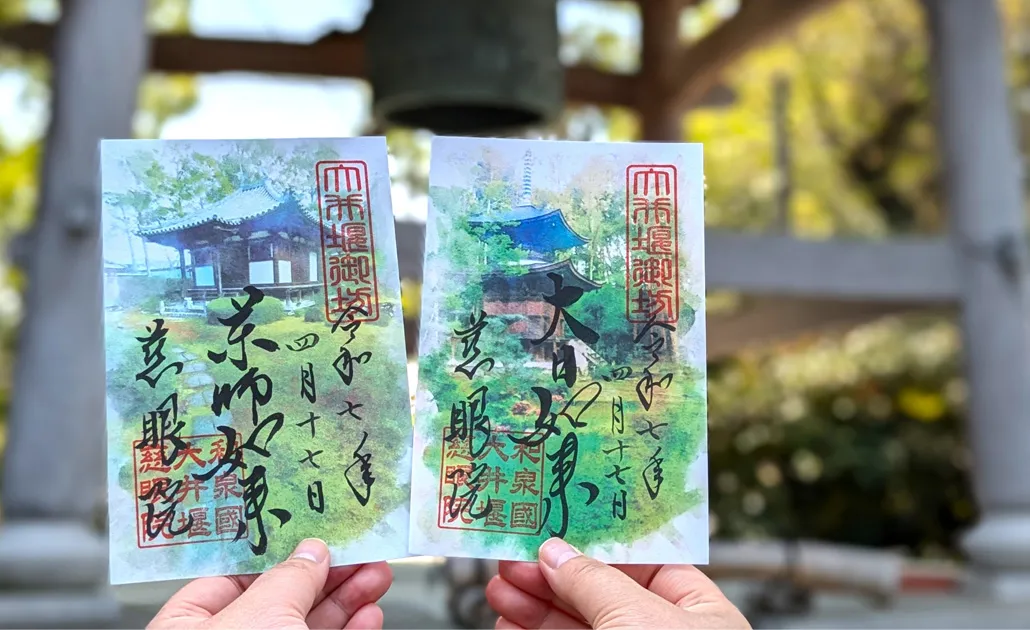 大井堰御坊
令和七年
四月十七日
薬師如来
慈眼院
和泉國
大井堰
慈眼院
大井堰御坊
令和七年
四月十七日
大日如来
慈眼院
和泉國
大井堰
慈眼院